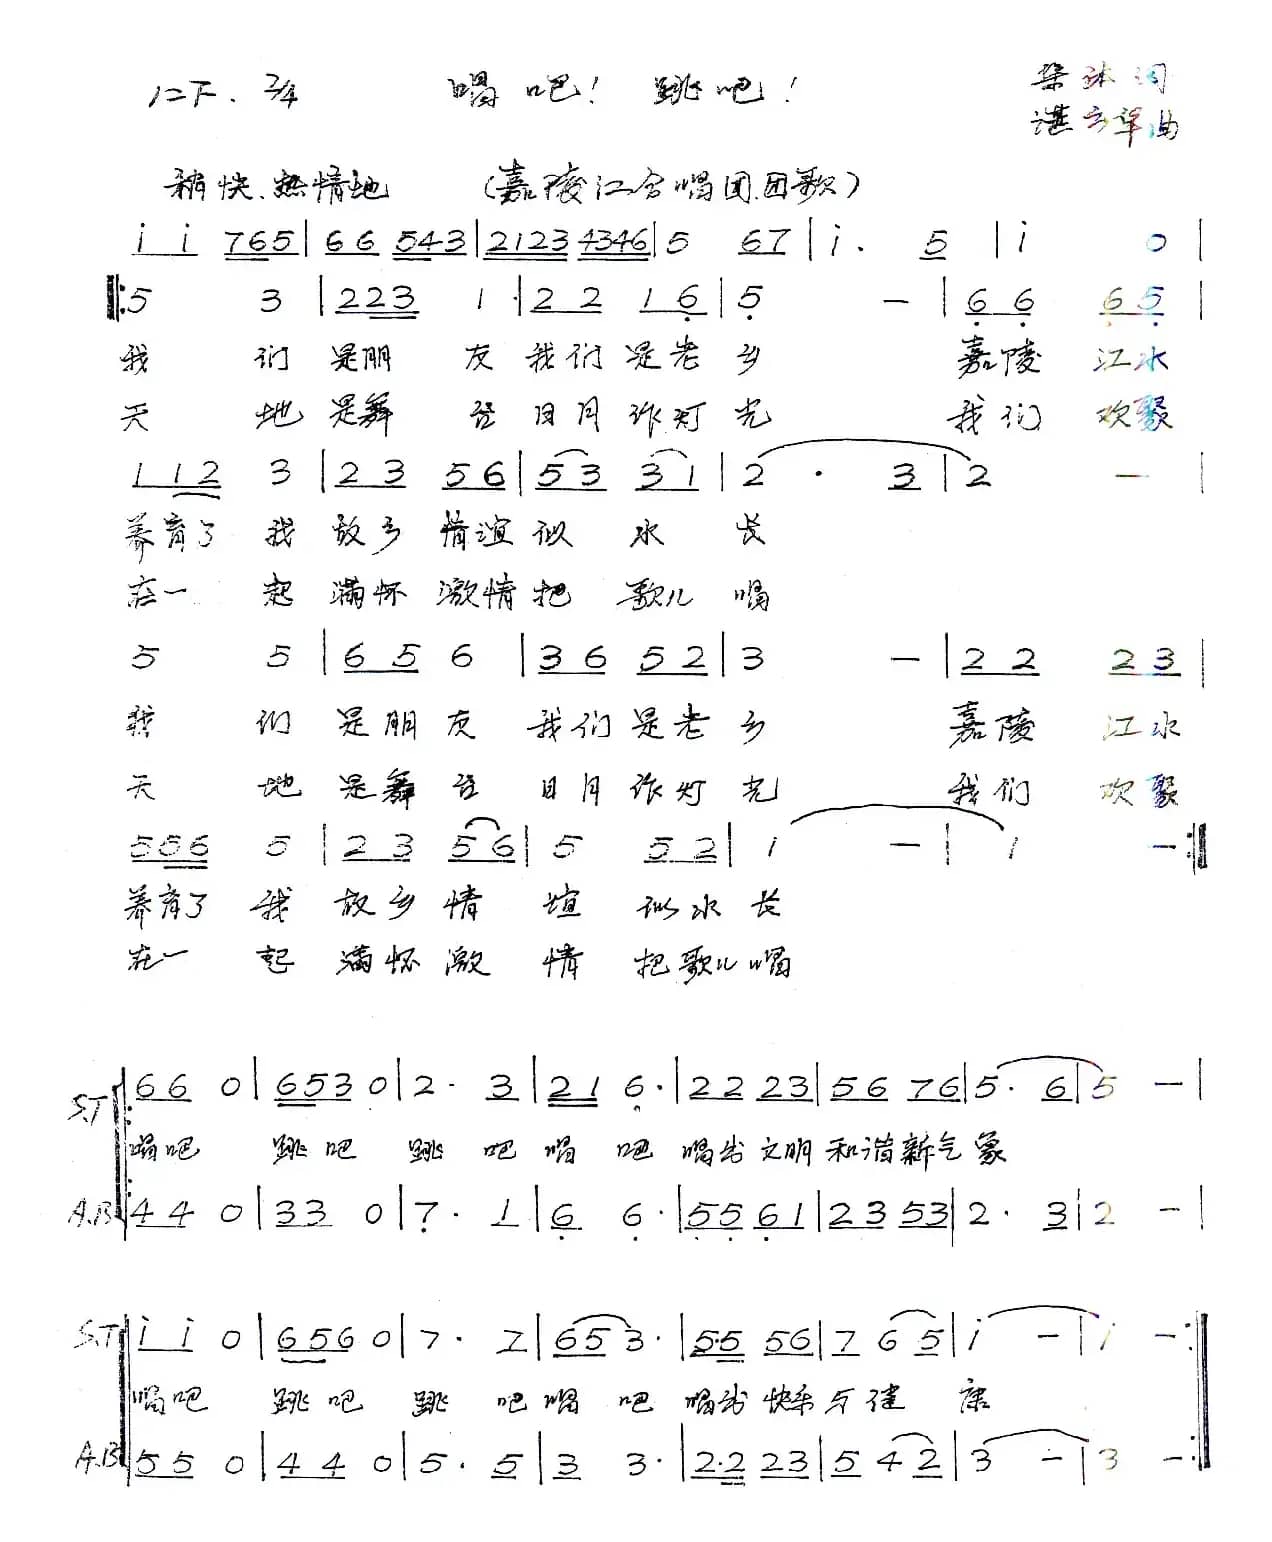 1=F 2/4 唱吧！跳吧！
词
谌 曲
稍快、热情地 （嘉陵江合唱团.团歌）
i i 765 | 66 543 | 2123 4346 | 5 67 | i. 5 | i 0 |
‖: 5 3 | 223 1 | 22 16̣ | 5̣ — | 6̣6̣ 6̣5̣ |
我们是朋友我们是老乡 嘉陵江水
天地是舞台日月作灯光 我们欢聚
112 3 | 23 56 | 53 31 | 2 · 3 | 2 — |
养育了我故乡情谊似水长
在一起满怀激情把歌儿唱
5 5 | 65 6 | 36 52 | 3 — | 22 23 |
我们是朋友我们是老乡 嘉陵江水
天地是舞台日月作灯光 我们欢聚
556 5 | 23 56 | 5 52 | i — | i — :‖
养育了我故乡情谊似水长
在一起满怀激情把歌儿唱
S.T ‖: 66 0 | 653 0 | 2· 3 | 21 6̣· | 22 23 | 56 76 | 5· 6 | 5 — |
唱吧 跳吧 跳吧唱吧 唱出文明和谐新气象
A.B ‖: 44 0 | 33 0 | 7̣· 1 | 6̣ 6̣· | 5̣5̣ 6̣1 | 23 53 | 2· 3 | 2 — |
S.T i i 0 | 656 0 | 7· 7 | 65 3· | 5·5 56 | 7 65 | i — | i — :‖
唱吧 跳吧 跳吧唱吧 唱出快乐与健康
A.B 55 0 | 44 0 | 5· 5 | 3 3· | 2·2 23 | 5 42 | 3 — | 3 — :‖